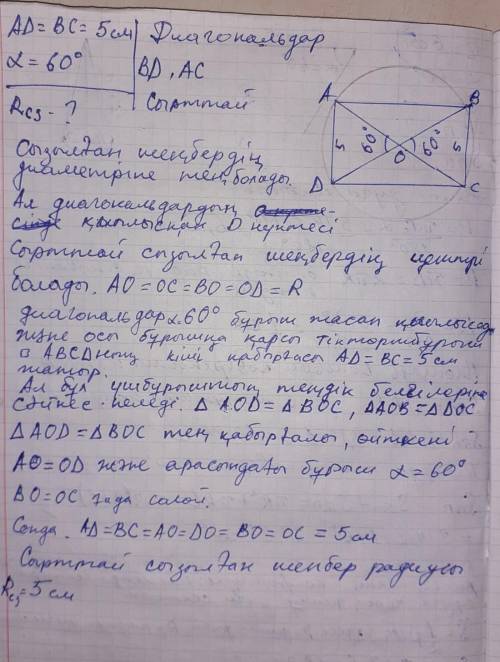 AD = BC = 5 см
α = 60°
R сз - ?
Диагональдар
BD, AC
Сырттай
A
B
5
60°
O
60°
5
D
C
Сызылған шеңбердің
диаметріне тең болады.
Ал диагональдардың
қиылысқан O нүктесі
Сырттай сызылған шеңбердің центрі
болады. AO = OC = BO = OD = R
диагональдар α 60° бұрыш жасап қиылысады
және осы бұрышқа қарсы тіктөртбұрыш
ABCD ның кіші қабырғасы AD = BC = 5 см
жатыр.
Ал бұл үшбұрыштың теңдік белгілеріне
сәйкес келеді. △ AOD = △ BOC, △AOB = △DOC
△ AOD = △ BOC тең қабырғалы, өйткені
AO = OD және арасындағы бұрыш α = 60°
BO = OC солай.
Сонда. AD = BC = AO = DO = BO = OC = 5 см
Сырттай сызылған шеңбер радиусы
R сз = 5 см